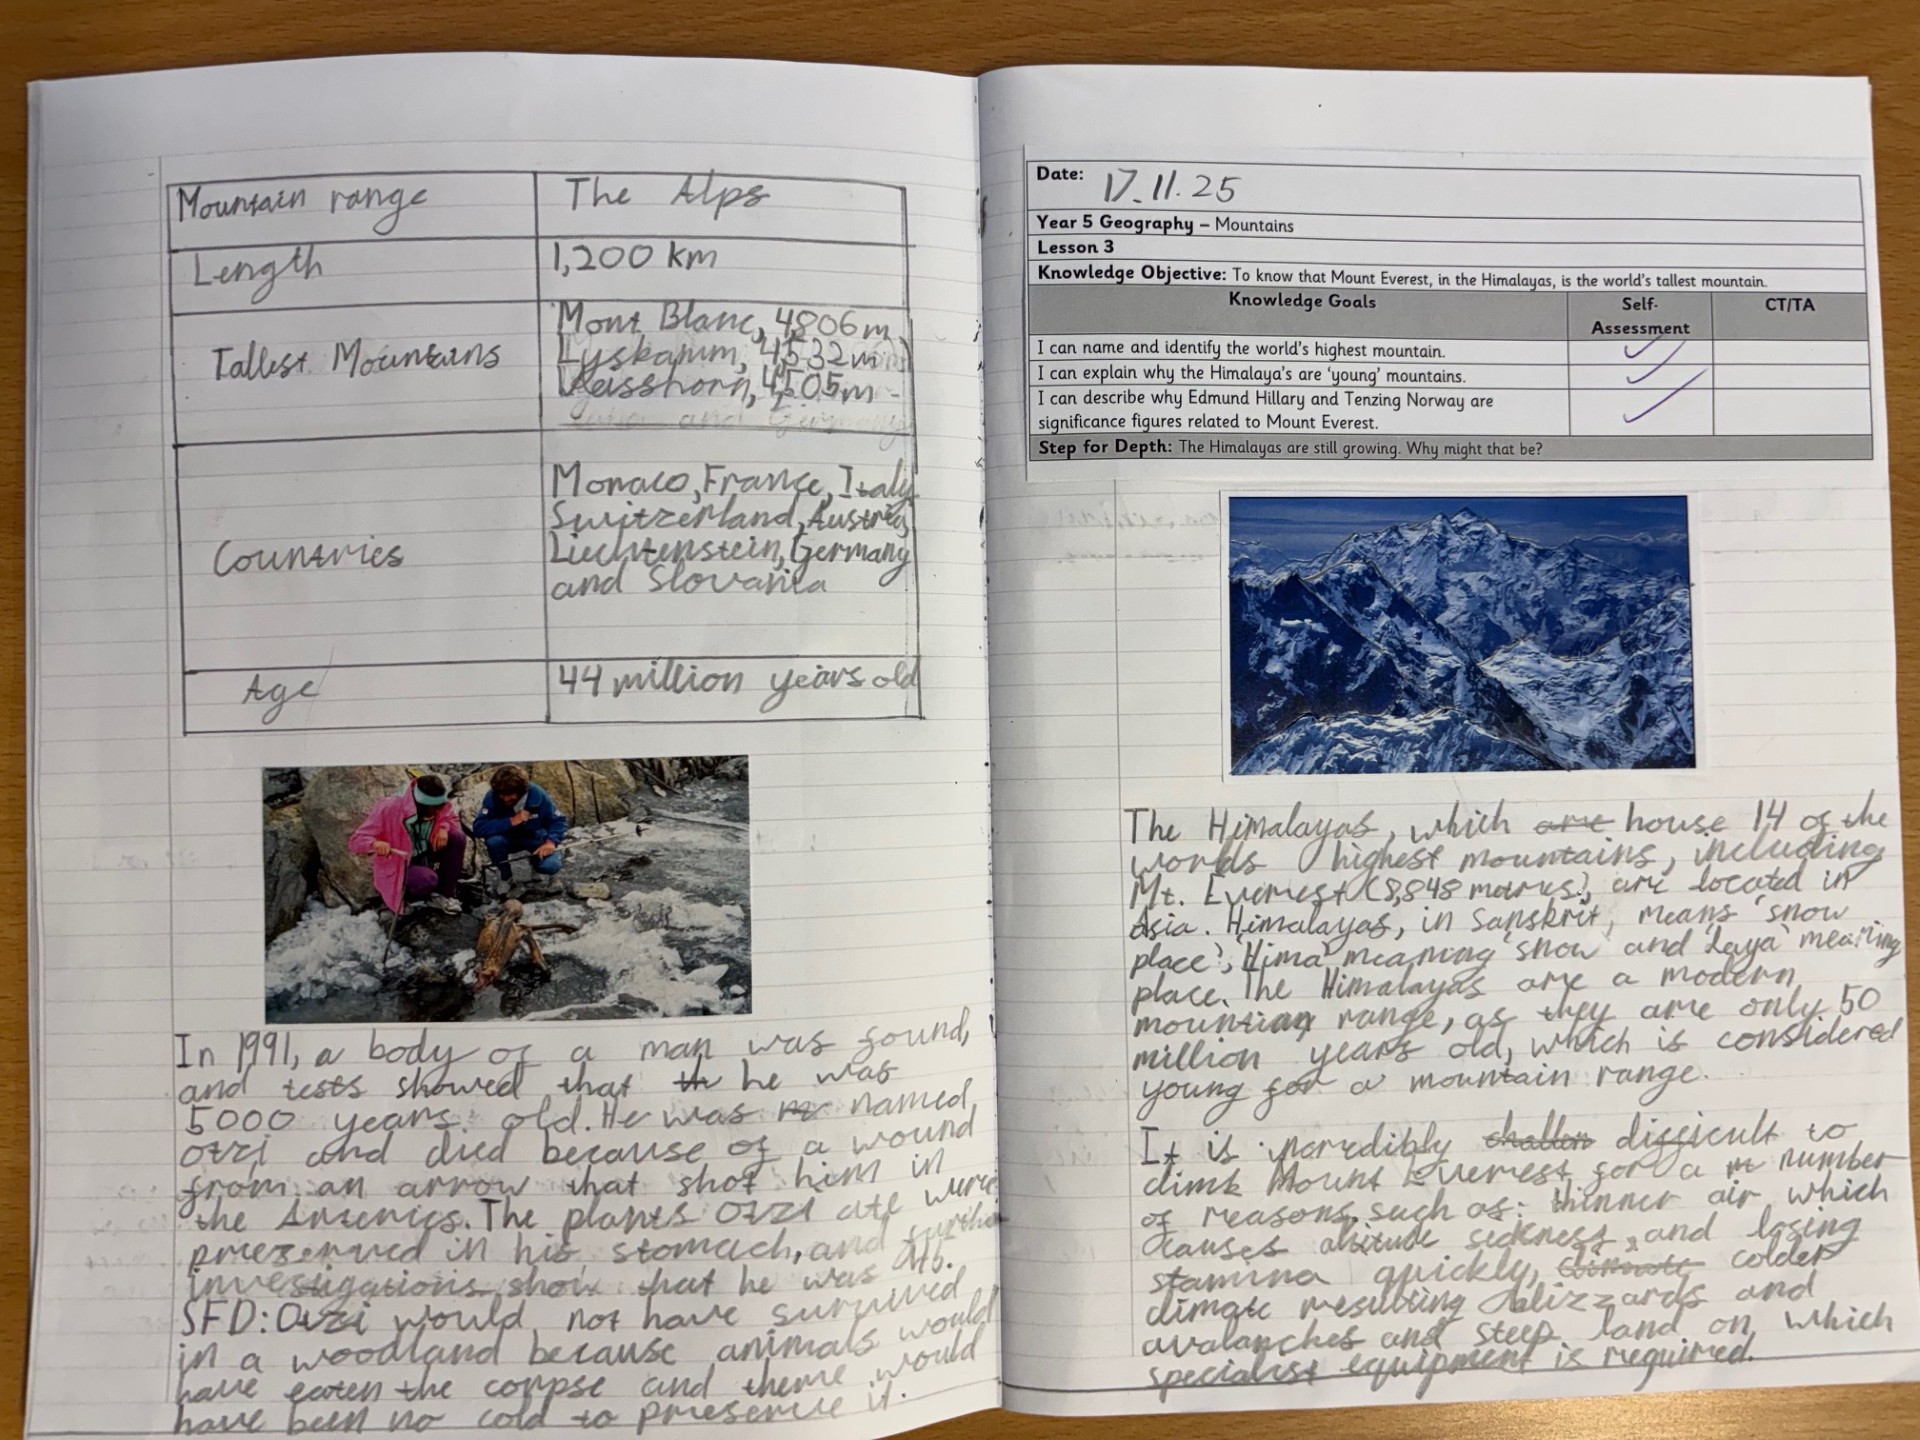 Mountain range
The Alps
Length
1,200 km
Tallest Mountains
Mont Blanc, 4806m,
Lyskamm, 4532m
Weisshorn, 4505m
Countries
Monaco, France, Italy
Switzerland, Austria,
Liechtenstein, Germany
and Slovania
Age
44 million years old
In 1991, a body of a man was found,
and tests showed that th he was
5000 years old. He was na named
Otzi and died because of a wound
from an arrow that shot him in
the Arteries. The plants Otzi ate were
preserved in his stomach, and further
investigations show that he was 46.
SFD: Otzi would not have survived
in a woodland because animals would
have eaten the corpse and there would
have been no cold to preserve it.
Date: 17.11.25
Year 5 Geography – Mountains
Lesson 3
Knowledge Objective: To know that Mount Everest, in the Himalayas, is the world's tallest mountain.
Knowledge Goals
Self-
Assessment
CT/TA
I can name and identify the world's highest mountain.
I can explain why the Himalaya's are 'young' mountains.
I can describe why Edmund Hillary and Tenzing Norway are
significance figures related to Mount Everest.
Step for Depth: The Himalayas are still growing. Why might that be?
The Himalayas, which are house 14 of the
worlds highest mountains, including
Mt. Everest (8,848 metres), are located in
Asia. Himalayas, in Sanskrit, means 'snow
place', 'Hima' meaning 'snow' and 'laya' meaning
place. The Himalayas are a modern
mountian range, as they are only 50
million years old, which is considered
young for a mountain range.
It is incredibly challen difficult to
climb Mount Everest for a number
of reasons, such as: thinner air which
causes altitude sickness, and losing
stamina quickly, climate colder
climate resulting blizzards and
avalanches and steep land on which
specialist equipment is required.